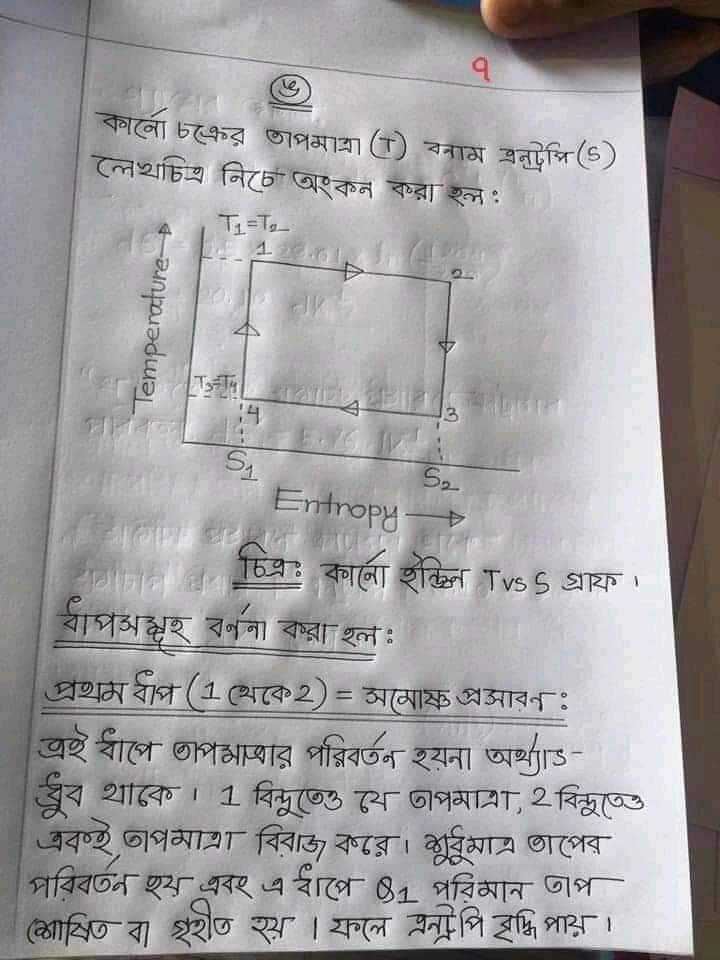 ৭
৬
কার্নো চক্রের তাপমাত্রা (T) বনাম এনট্রপি (S)
লেখচিত্র নিচে অংকন করা হল:
T₁=T₂
1
2
Temperature →
T₃=T₄
4
3
S₁
S₂
Entropy →
চিত্র: কার্নো ইঞ্জিন T vs S গ্রাফ।
ধাপসমূহ বর্ননা করা হল:
প্রথম ধাপ (1 থেকে 2) = সমোষ্ণ প্রসারন:
এই ধাপে তাপমাত্রার পরিবর্তন হয়না অর্থ্যাৎ-
ধ্রুব থাকে। 1 বিন্দুতেও যে তাপমাত্রা, 2 বিন্দুতেও
একই তাপমাত্রা বিরাজ করে। শুধুমাত্র তাপের
পরিবর্তন হয় এবং এ ধাপে Q₁ পরিমান তাপ
শোষিত বা গৃহীত হয়। ফলে এনট্রপি বৃদ্ধি পায়।